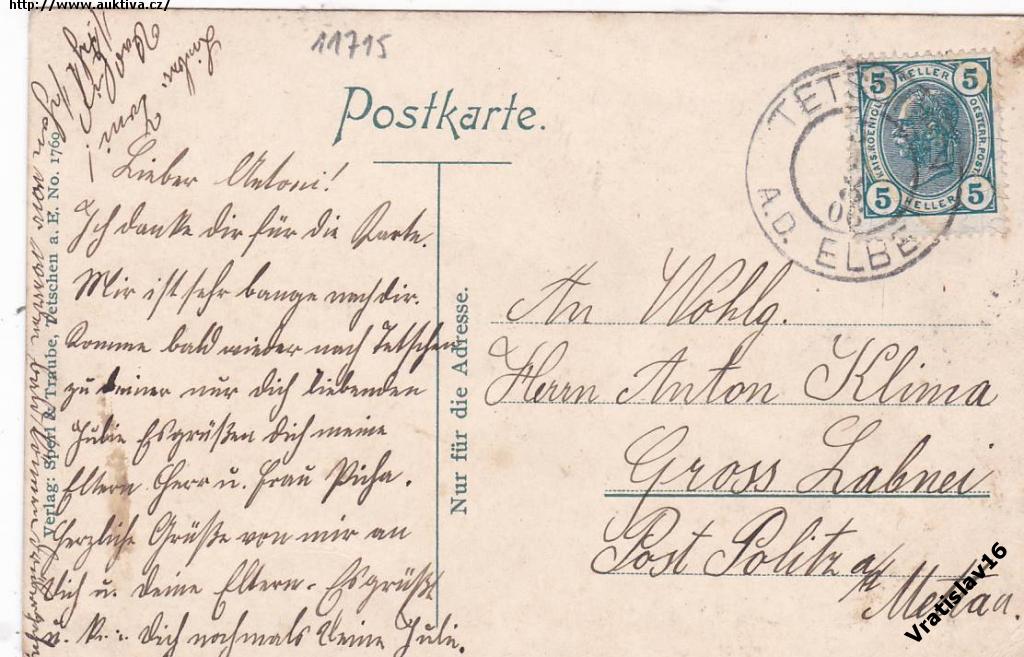 http://www.auktiva.cz/
11715
Postkarte.
5 HELLER 5
KAIS. KOENIGL. OESTERR. POST
5 HELLER 5
TETSCHEN
A.D. ELBE
Lieber Antoni!
Ich danke dir für die Karte.
Mir ist sehr bange nach dir.
Komme bald wieder nach Tetschen
zu deiner nur dich liebenden
Julie Es grüßen dich meine
Eltern Herr u. Frau Picha.
Herzliche Grüße von mir an
dich u. deine Eltern. Es grüßt
u. k. dich nochmals deine Julie.
Verlag: Sperl & Traube, Tetschen a. E. No. 1760
Nur für die Adresse.
An Wohlg.
Herrn Anton Klima
Gross Labnei
Post Politz a/d
Mettau.
Vratislav16